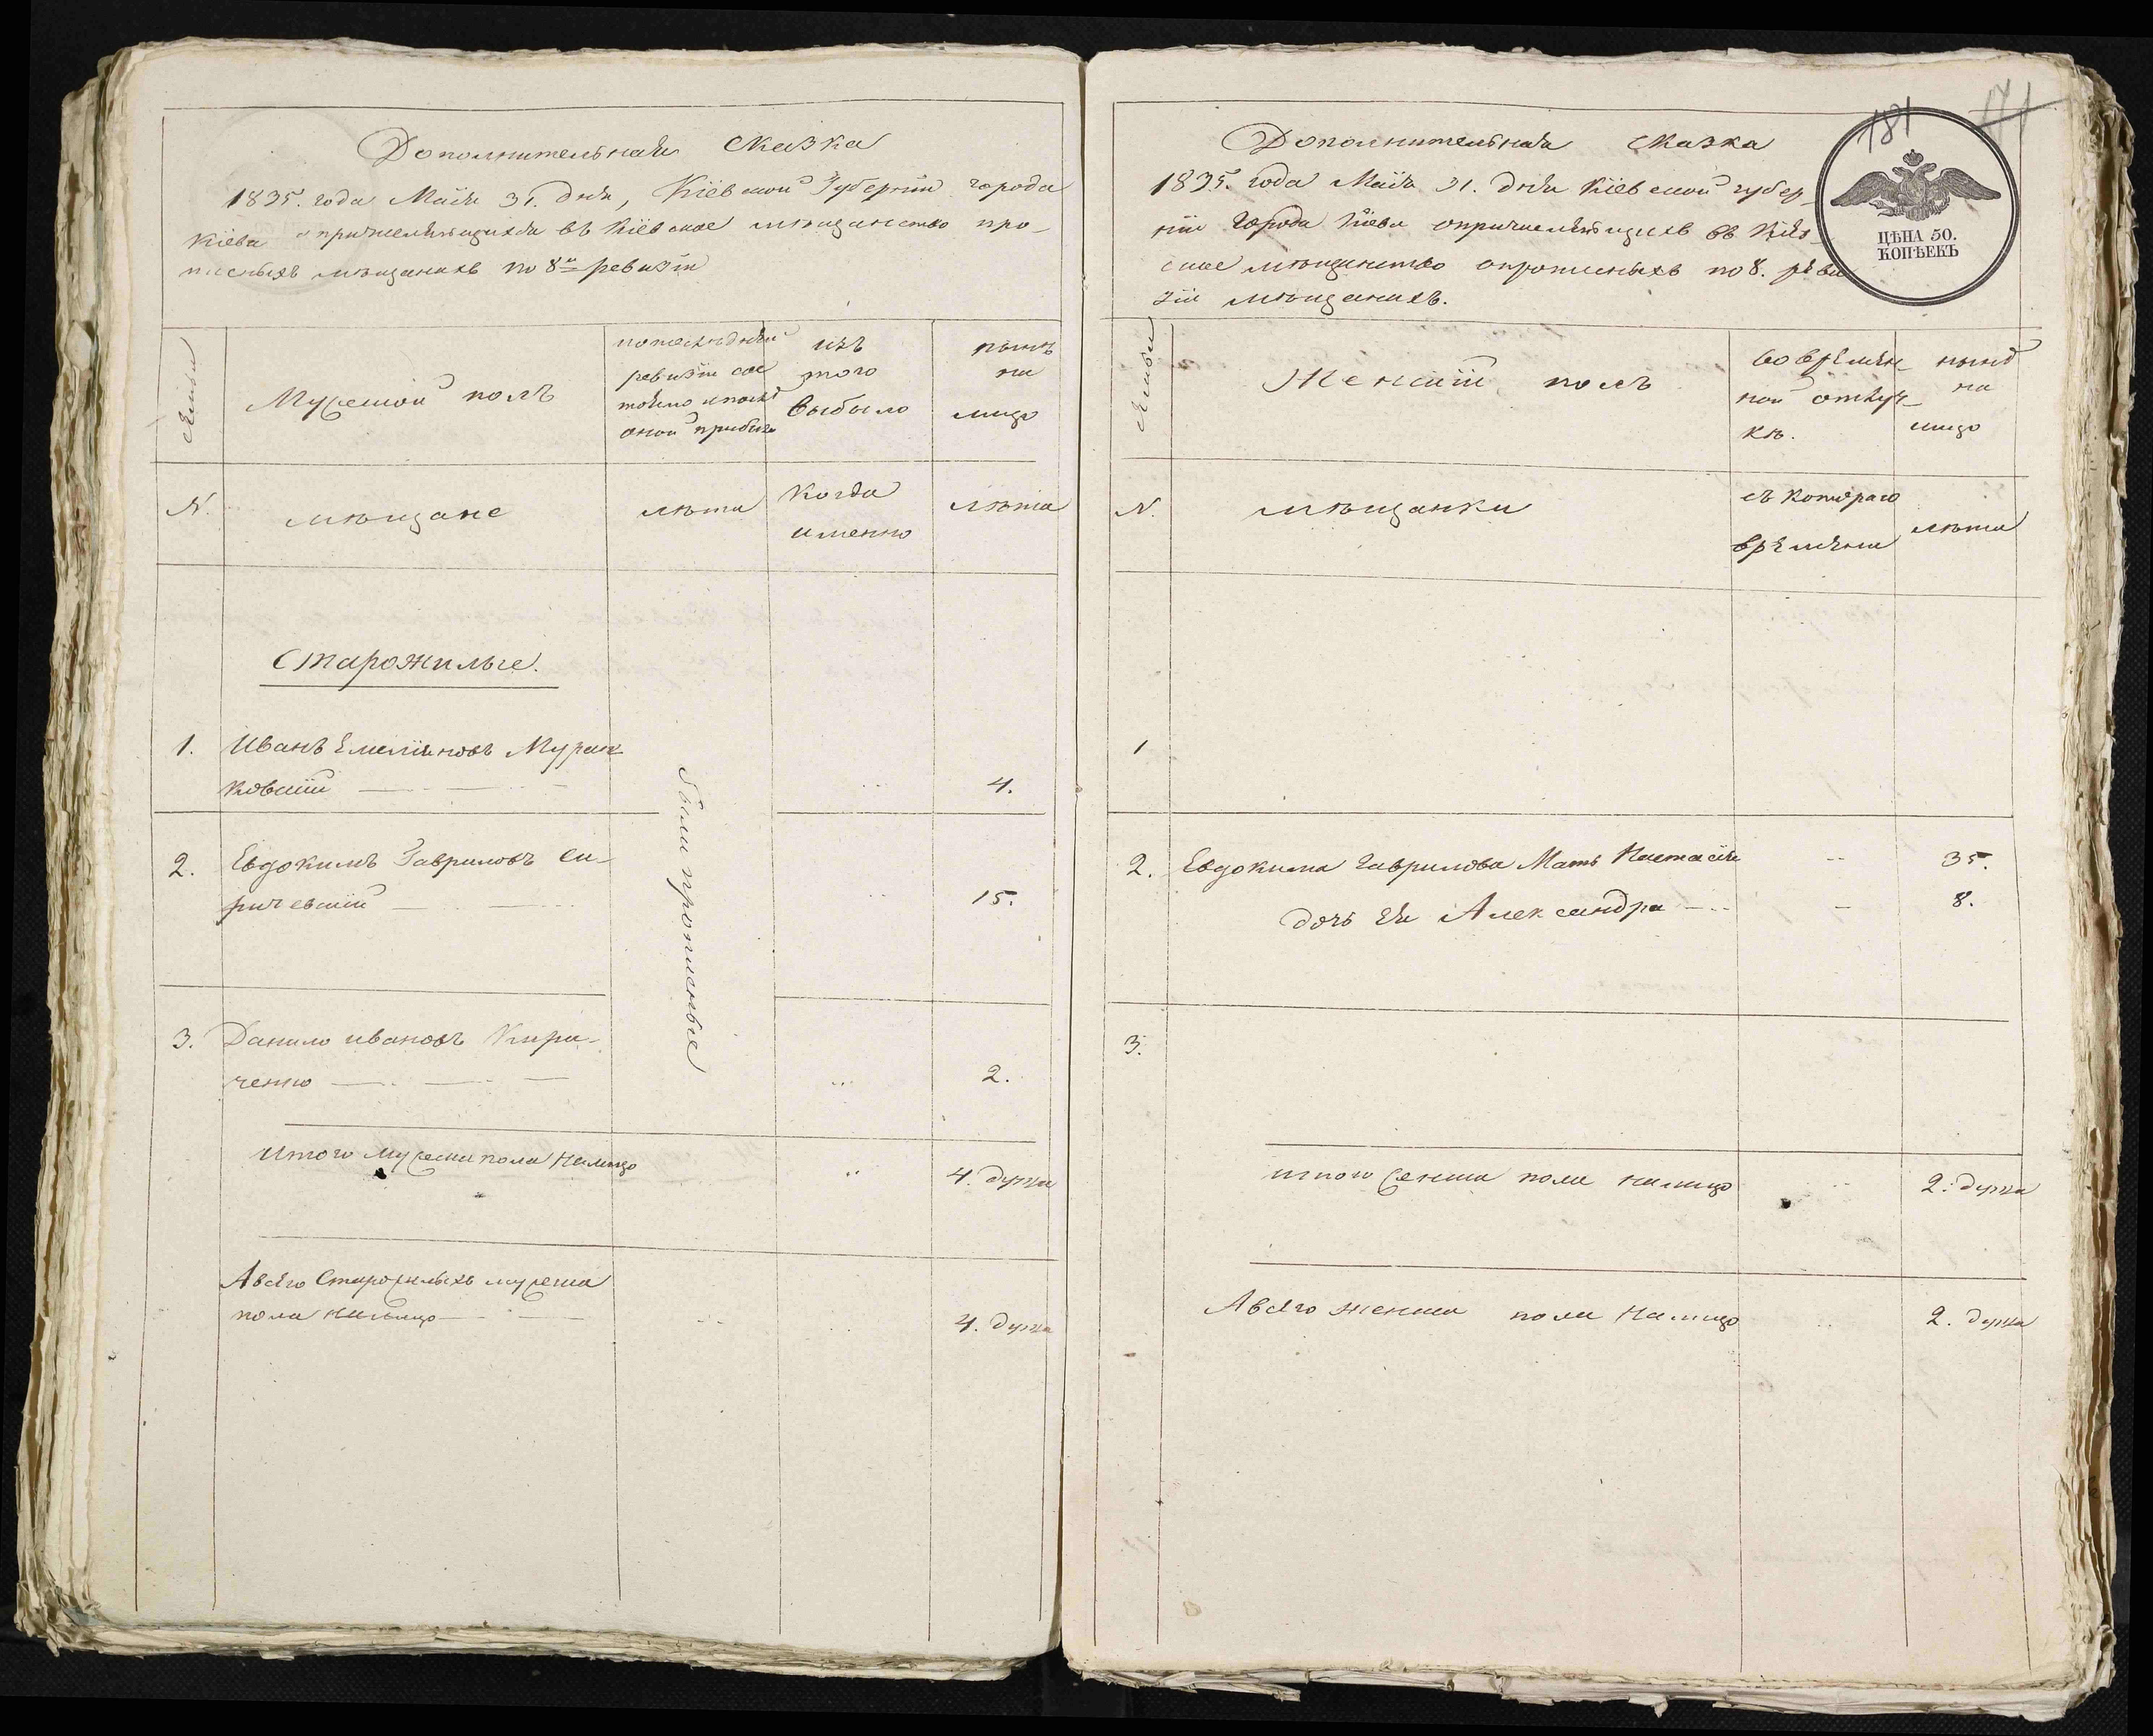 Дополнительная Сказка
1835. года Майя 31. дня, Кіевской Губерніи города
Кіева о причисляющихся въ Кіевское мѣщанство про-
писныхъ мѣщанахъ по 8й ревизіи
Семьи
Мужеской полъ
по последнѣй
ревизіи сос
тояло и послѣ
оной прибыло
изъ
того
выбыло
нынѣ
на
лицо
N.
мѣщане
лѣта
Когда
именно
лѣта
Старожилые.
1. Иванъ Емеліяновъ Мураш
ковскій 4.
2. Евдокимъ Гавриловъ Си-
ричевскій 15.
3. Данило Ивановъ Кири-
ченко 2.
были прописные
Итого мужеска пола налицо 4. душа
А всего Старожилыхъ мужеска
пола налицо 4. душа
181
Дополнительная Сказка
1835. года Майя 31. дня Кіевской губер-
ніи города Кіева о причисляющихъ въ Кіев-
ское мѣщанство о прописныхъ по 8. реви
зіи мѣщанахъ.
ЦѢНА 50.
КОПѢЕКЪ
Семьи
Женскій полъ
Во времен-
ной отлуч-
кѣ.
нынѣ
на
лицо
N.
мѣщанки
съ котораго
времени
лѣта
1
2. Евдокима Гаврилова Мать Настасія 35.
дочь Ея Александра 8.
3.
итого женска пола налицо 2. душа
А всего женска пола налицо 2. душа